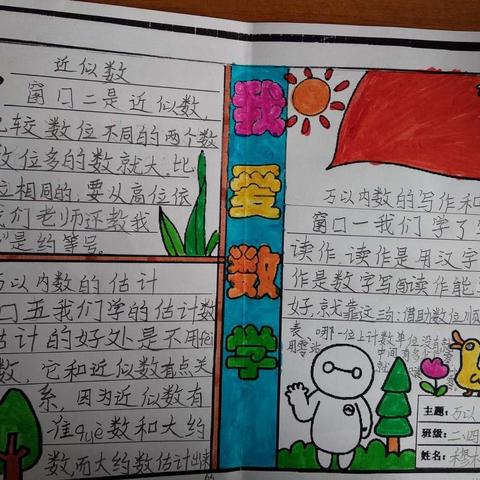 近似数
窗口二是近似数,
比较数位不同的两个数
数位多的数就大。比
位相同的,要从高位依
我们老师还教我
"是约等号。
万以内数的估计
口五我们学的估计数
估计的好处是不用
数,它和近似数有点关
系,因为近似数有
准què数和大约
数,而大约数估计出来
我爱数学
万以内数的写作和
窗口一我们学了
读作、读作是用汉字
作是数字写而读作能
好,就靠这三句:借助数位顺
表,哪一位上计数单位没有
用零占
中间有多少
主题:万以
班级:二、四
姓名:穆